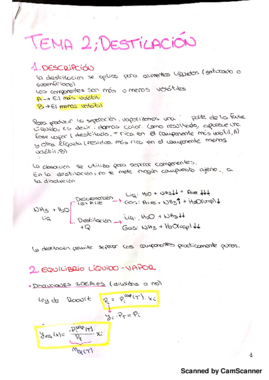 TEMA 2; DESTILACIÓN
1. DESCRIPCIÓN
La destilación se aplica para alimentos líquidos (saturado o
subenfriado)
Los componentes son más o menos volátiles
A → El más volátil
B → El menos volátil
Para producir la separación, vaporizamos una parte de la fase
líquida, es decir, damos calor. Como resultado, aparece una
fase vapor (destilado, + rico en el componente más volátil, A)
y otra líquida (residuo más rico en el componente menos
volátil, B)
se utiliza para separar componentes.
En la destilación, no se mete ningún compuesto ajeno, a
la disolución
NH3 + H2O
Liq
Desabsorción
con Aire
Liq: H2O + NH3↓↓ + Aire ↓↓↓
Gas: Aire + NH3↑ + H2O(vap)↓
Destilación
+Q
Liq: H2O + NH3↓↓
Gas: NH3 + H2O(vap)↓↓
La destilación permite separar los componentes prácticamente puros.
2. EQUILIBRIO LÍQUIDO-VAPOR
• DISOLUCIONES IDEALES (diluidas o no)
Ley de Raoult Pi = Pi^vap(T) · xi
yi · PT = Pi
Scanned by CamScanner